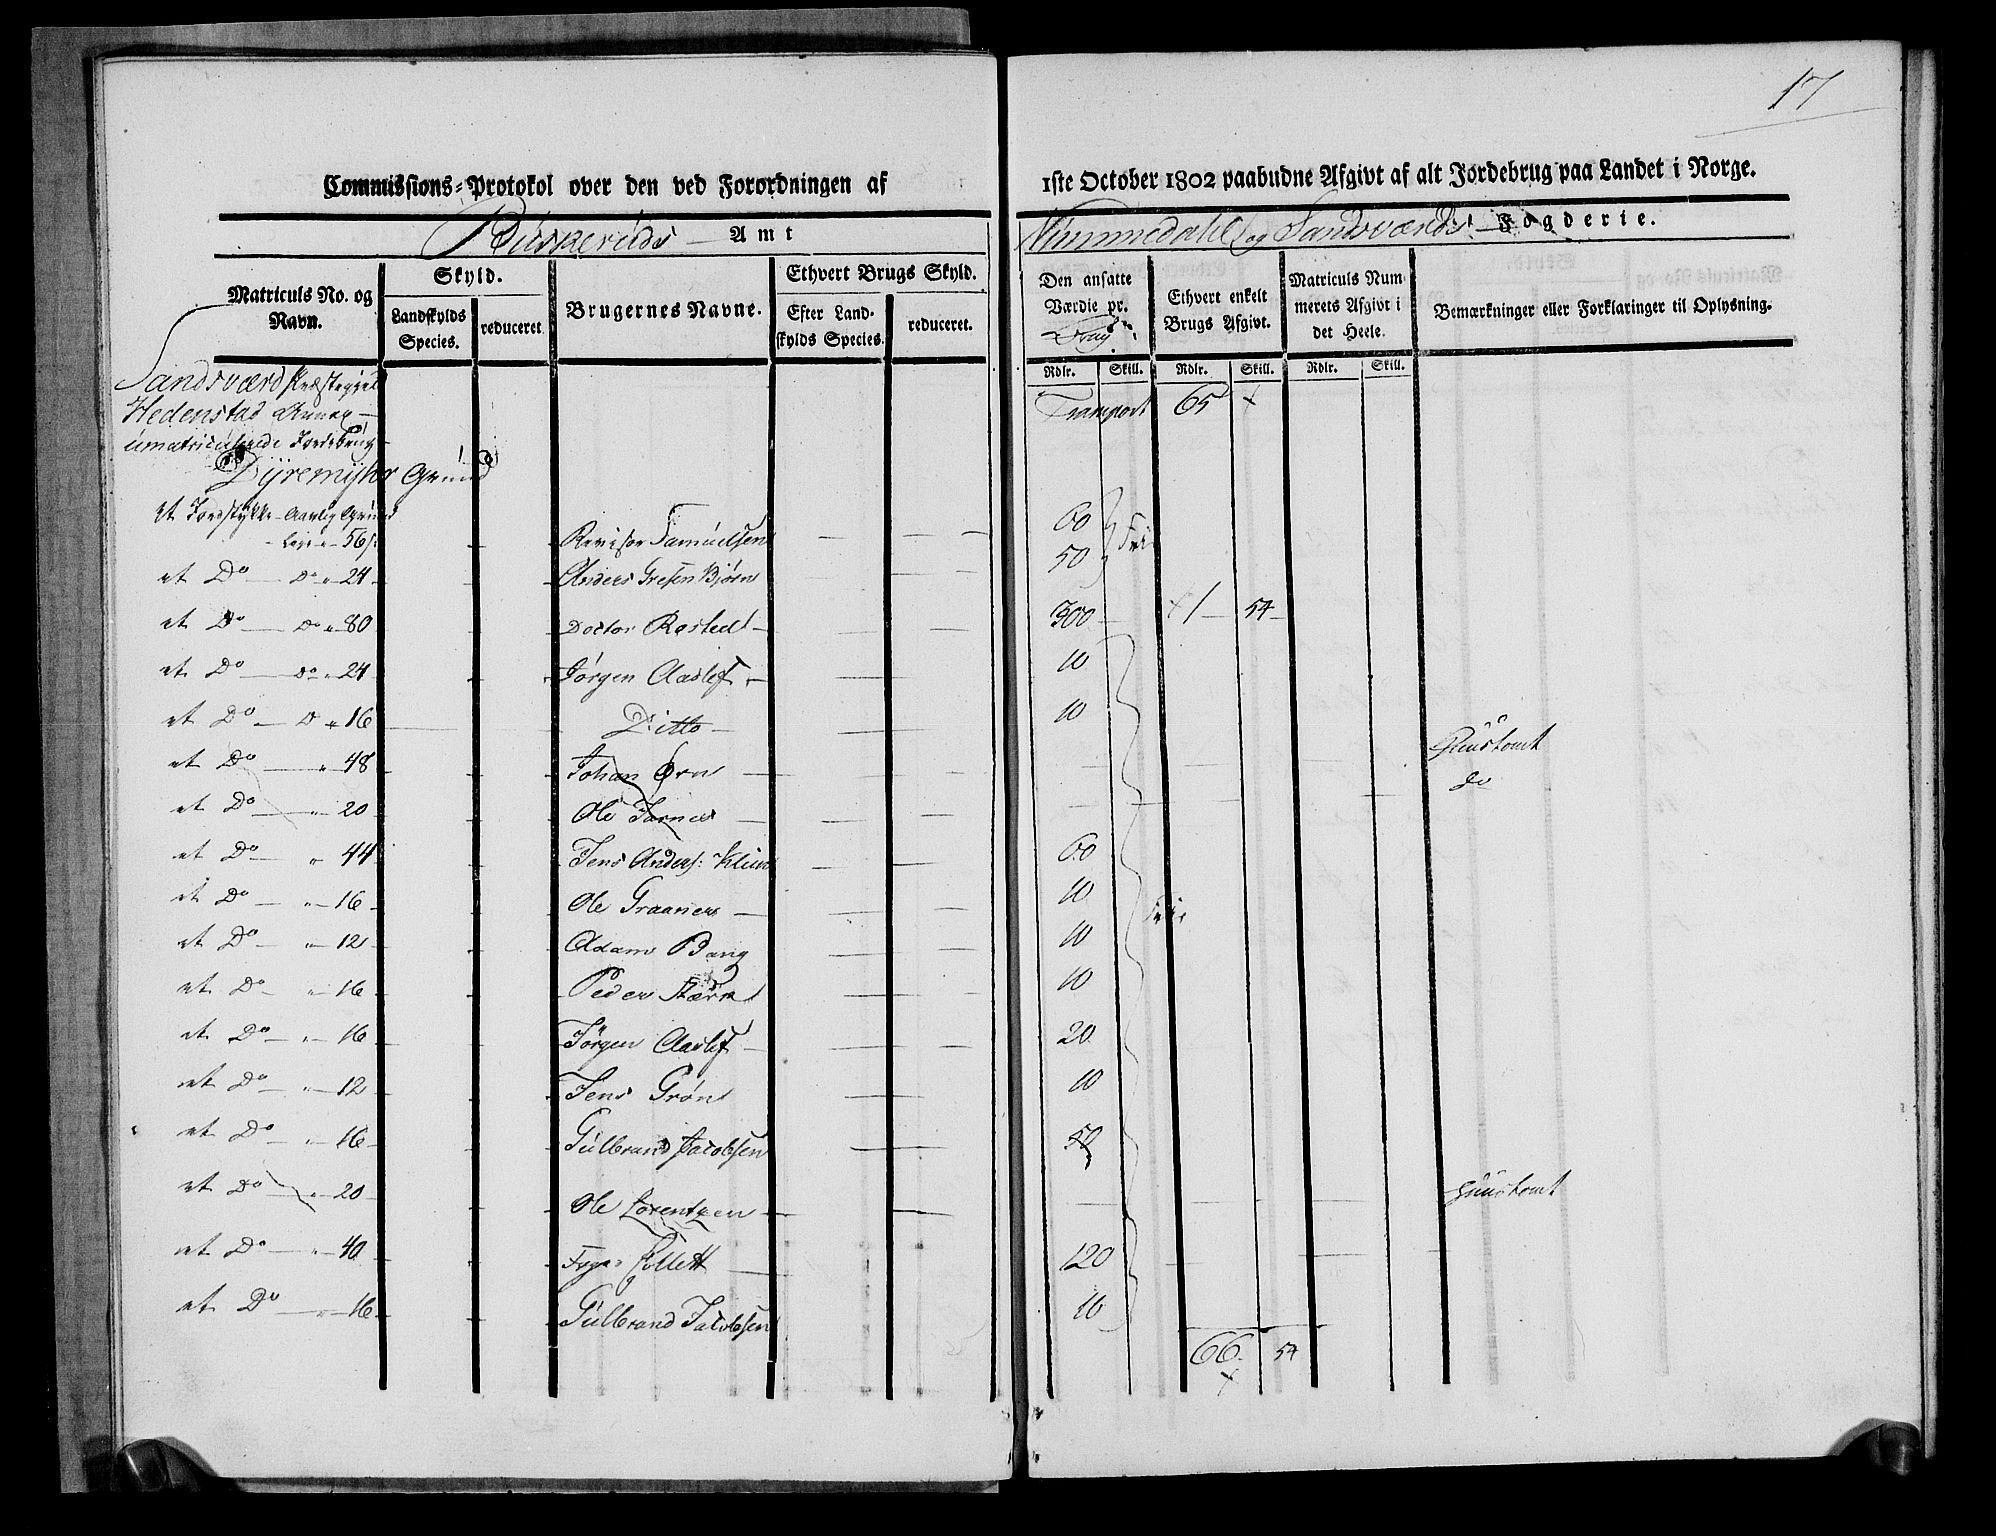 17
Commissions-Protokol over den ved Forordningen af
1ste October 1802 paabudne Afgivt af alt Jordebrug paa Landet i Norge.
Buskeruds Amt
Nummedahls og Sandsværds Fogderie.
Matriculs No. og Navn.
Skyld.
Landskylds Species.
reduceret
Brugernes Navne.
Ethvert Brugs Skyld.
Efter Landskylds Species.
reduceret.
Den ansatte Værdie pr.
Ethvert enkelt Brugs Afgivt.
Matriculs Nummerets Afgivt i det Heele.
Bemærkninger eller Forklaringer til Oplysning.
Rdlr. Skill. Rdlr. Skill. Rdlr. Skill.
Sandsværd Præstegjeld
Hedenstad Annex
umatriculerede Jordebrug
Transport 65
Dyremyhr Grund
et Jordstykke Aarlig Grund
Leje 56 s: Revisor Samuelsen 60
et Do Do 24 Anders Gresen Bjørn 50 Frie
et Do Do 80 Doctor Rasted 300 1 54
et Do Do 24 Jørgen Aaslef 10
et Do Do 16 Ditto 10
et Do 48 Johan Ørn Huustomt
et Do 20 Ole do
et Do 44 Jens Anders: 60
et Do 16 Ole Graaner 10 Frie
et Do 12 Adam Bang 10
et Do 16 Peder 10
et Do 16 Jørgen Aaslef 20
et Do 12 Jens Grøn 10
et Do 16 Gulbrand Jacobsen 50
et Do 20 Ole Lorentzen Huustomt
et Do 40 Collett 120
et Do 16 Gulbrand Jacobsen 10
66 54